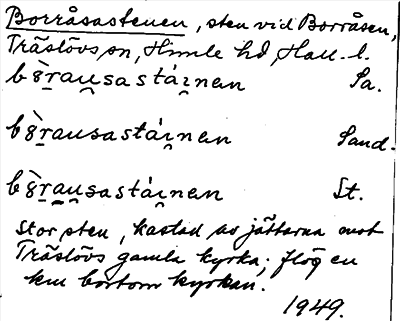 Borråsastenen, sten vid Borråsen,
Träslövs sn, Himle hd, Hall. l.
bo̊̀rau̯sastái̯nen Sa.
bo̊̀rau̯sastái̯nen Sand.
bo̊̀rau̯sastái̯nen St.
Stor sten, kastad av jättarna mot
Träslövs gamla kyrka; flög en
km bortom kyrkan.
1949.